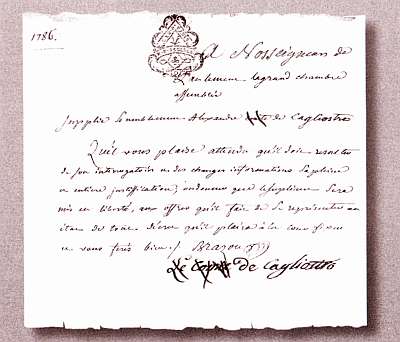 1786.
A Nosseigneurs de
Parlement la grand chambre
assemblée
Supplie humblement Alexandre de Cagliostro
Qu'il vous plaise attendu qu'il doit resulter
de son interrogatoire et des charges informations sa pleine
et entiere justification, ordonner que le supliant sera
mis en liberté, aux offres qu'il fait de se représenter en
état de toute décret qu'il plaira à la cour
et vous ferés bien. /
Le Comte de Cagliostro